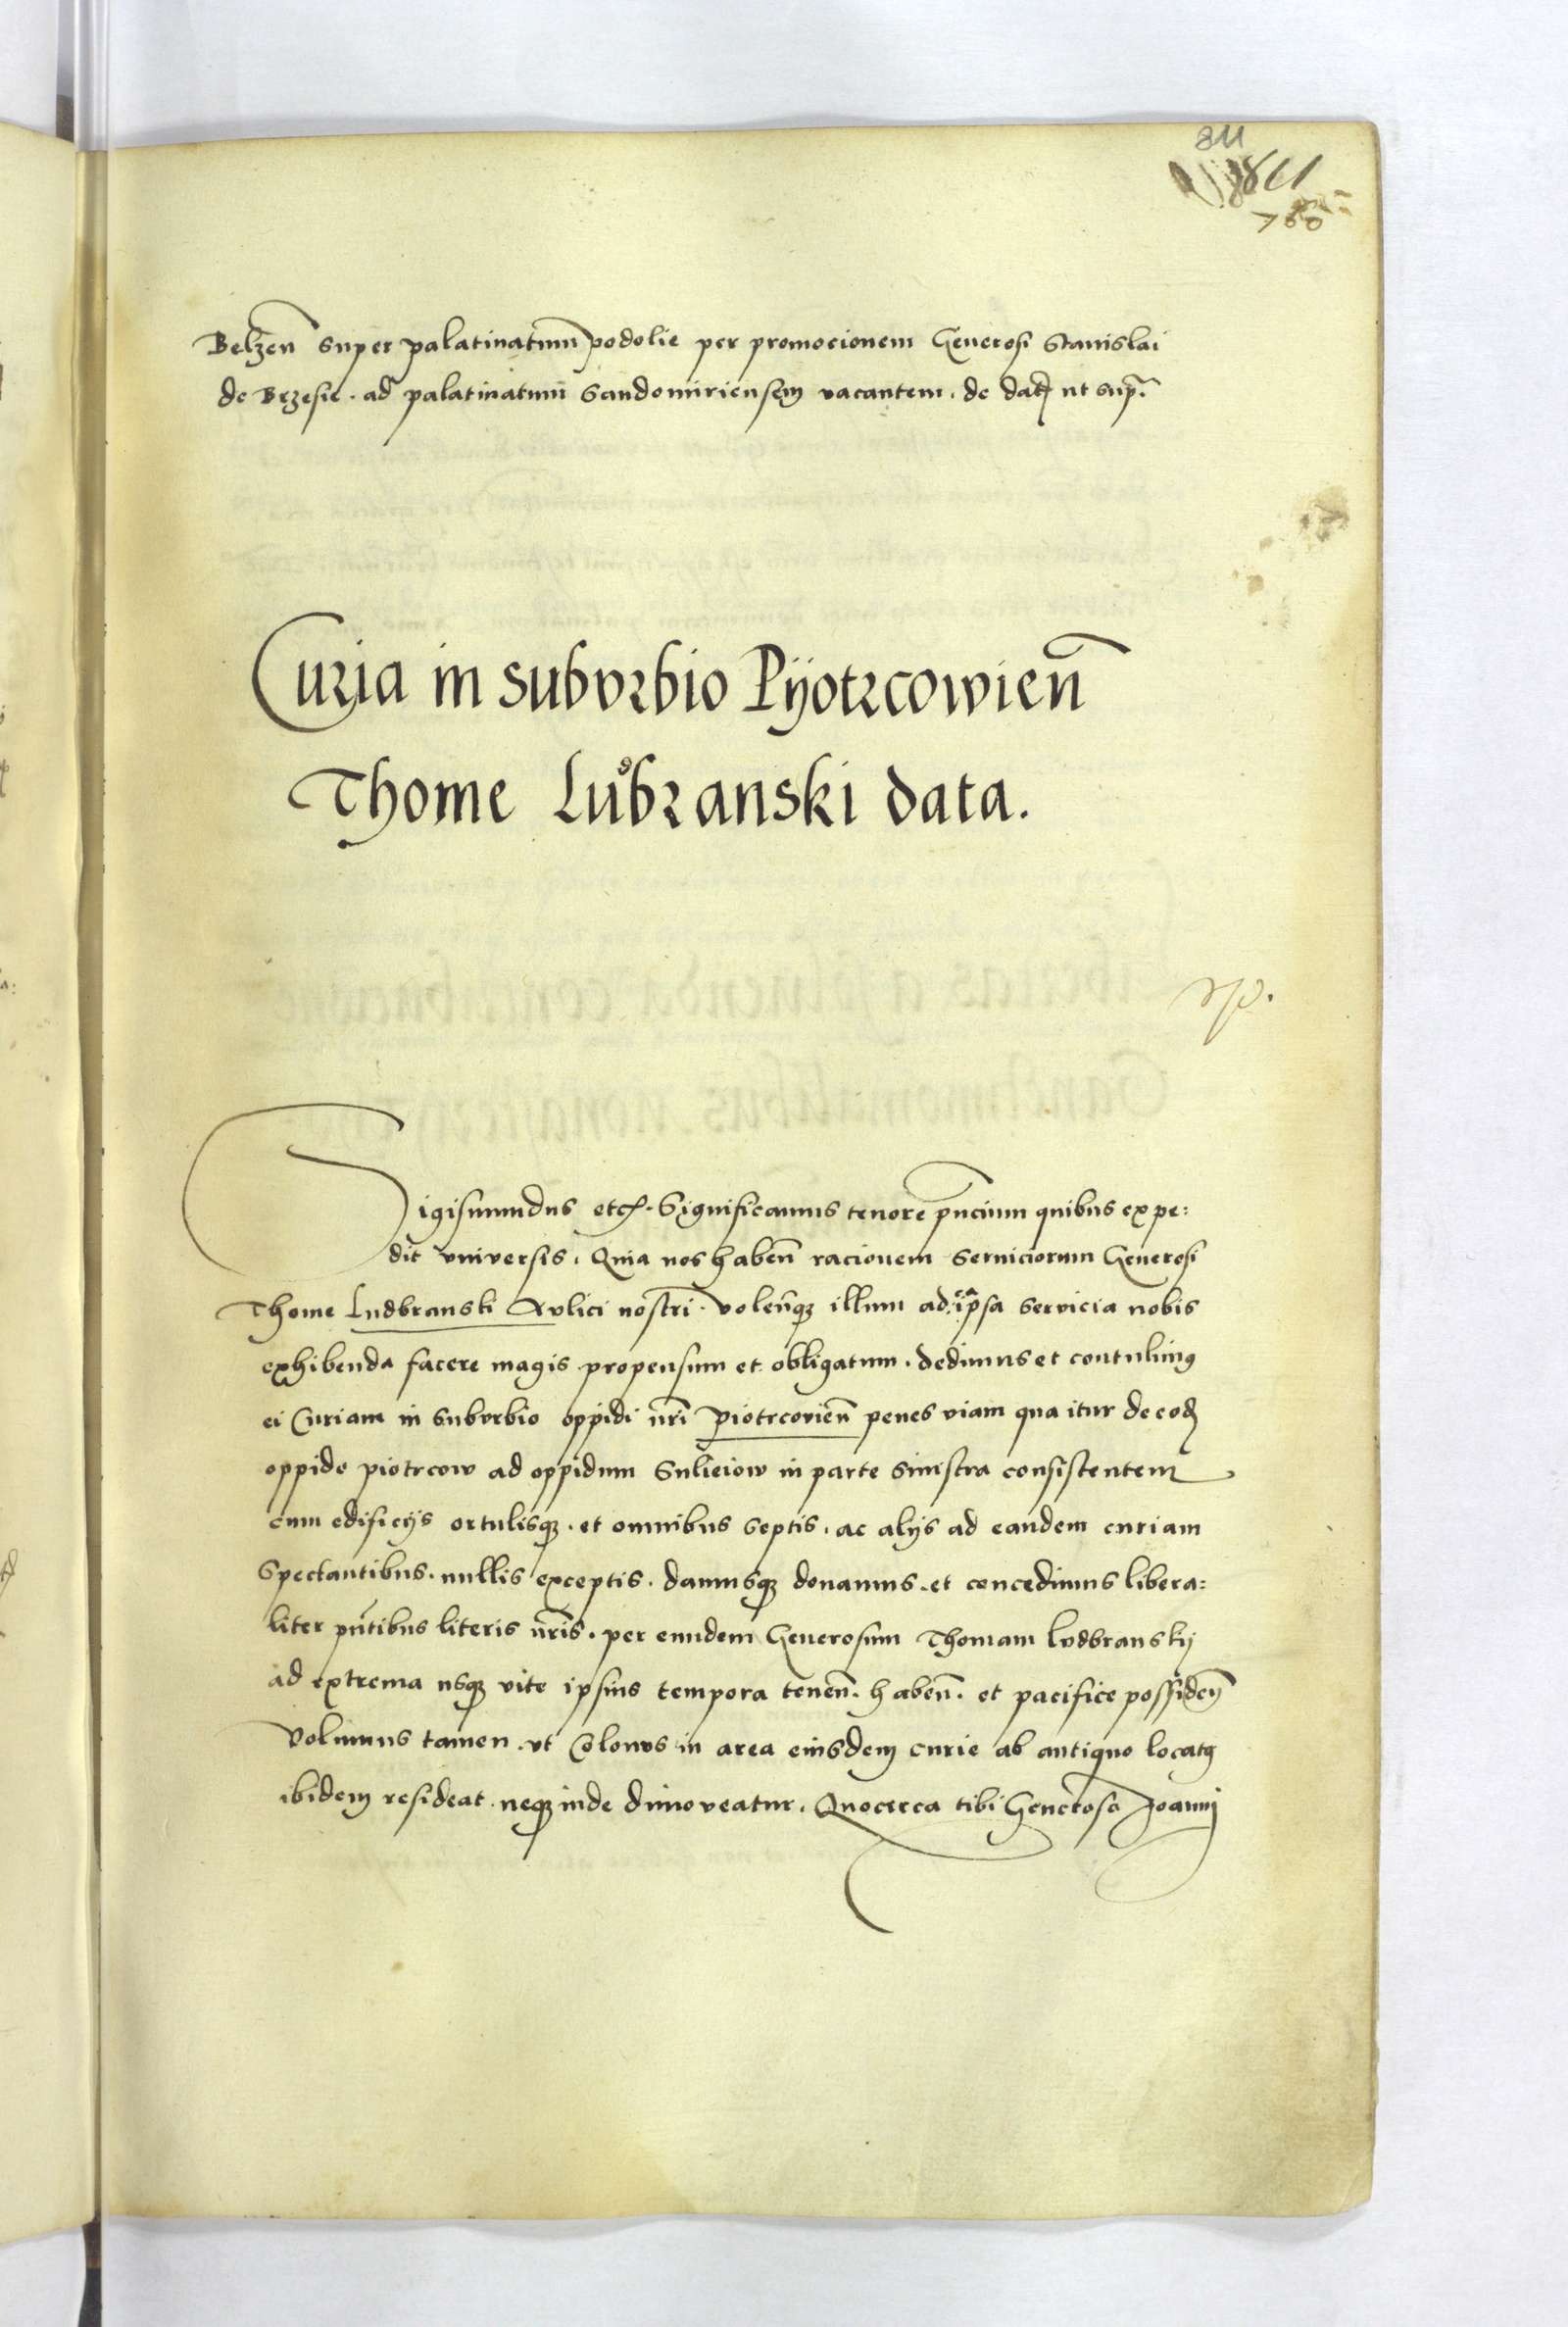 811
811
Belzen̄ super palatinatum podolie per promocionem Generosi Stanislai
de Brzesie . ad palatinatum Sandomiriensem vacantem . de dat ut supra.
Curia in suburbio Pÿotrcowien̄
Thome Ludbranski data.
Sigismundus etc. Significamus tenore pn̄cium quibus expe:
dit vniversis . Quia nos haben̄ racionem serviciorum Generosi
Thome Ludbranski Aulici nostri . volen̄q; illum ad ip̄sa servicia nobis
exhibenda facere magis propensum et obligatum . dedimus et contulimus
ei Curiam in suburbio oppidi nr̄i piotrcovien̄ penes viam qua itur de eod
oppido piotrcow ad oppidum Sulieiow in parte sinistra consistentem
cum edificÿs ortulisq; . et omnibus septis . ac alÿs ad eandem curiam
Spectantibus . nullis exceptis . damusq; donamus . et concedimus libera:
liter pn̄tibus literis nr̄is . per eundem Generosum Thomam ludbranskÿ
ad extrema usq; vite ipsius tempora tenen̄ . haben̄ . et pacifice possiden̄
Volumus tamen . vt Colonus in area eiusdem curie ab antiquo locatus
ibidem resideat . neq; inde dimoveatur . Quocirca tibi Generoso Joanni